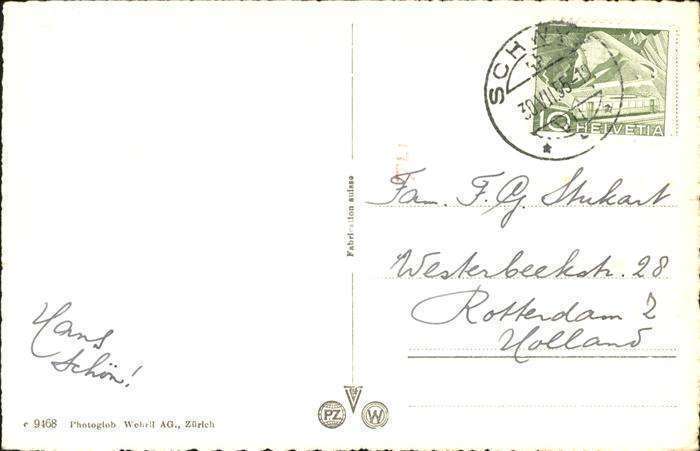 SCHWYZ
30.VII.55-19
10 HELVETIA
Fabrication suisse
Fam. F. G. Stukart
Westerbeekstr. 28
Rotterdam Z
Holland
Hans
Schön!
c 9468 Photoglob-Wehrli AG., Zürich
PZ
W